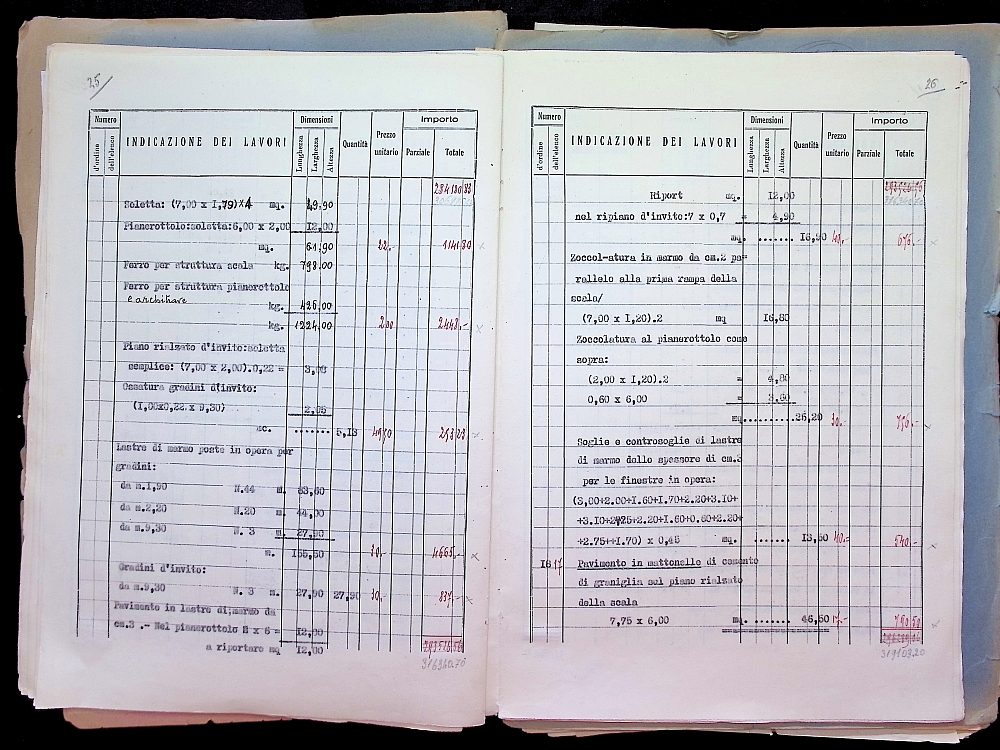 25
Numero
d'ordine
dell'elenco
INDICAZIONE DEI LAVORI
Dimensioni
Lunghezza
Larghezza
Altezza
Quantità
Prezzo unitario
Importo
Parziale
Totale
Soletta: (7,00 x I,79)x4 mq. 49.90
Pianerottolo:soletta:6,00 x 2,00 I2,00
mq. 61.90 22.-
Ferro per struttura scala kg. 798.00
Ferro per struttura pianerottolo
e architrave
kg. 426,00
kg. 1224,00 200 2448.-
Piano rialzato d'invito:soletta
semplice: (7,00 x 2,00).0,22 = 3,08
Ossatura gradini d'invito:
(I,00x0,22 x 9,30) 2,05
mc. ....... 5,I3
Lastre di marmo poste in opera per
gradini:
da m.I,90 N.44 m. 83,60
da m.2,20 N.20 m. 44,00
da m.9,30 N. 3 m. 27,90
m. I55,50 30.- 4665.-
Gradini d'invito:
da m.9,30 N. 3 m. 27,90 27,90 30,- 837.-
Pavimento in lastre di marmo da
cm.3 .- Nel pianerottolo 2 x 6 = I2,00
a riportare mq I2,00
316340.76
26
Numero
d'ordine
dell'elenco
INDICAZIONE DEI LAVORI
Dimensioni
Lunghezza
Larghezza
Altezza
Quantità
Prezzo unitario
Importo
Parziale
Totale
Riport mq. I2,00
nel ripiano d'invito:7 x 0,7 = 4,90
mq. ....... I6,90 40,- 676.-
Zoccol-atura in marmo da cm.2 pa=
rallelo alla prima rampa della
scala/
(7,00 x I,20).2 mq I6,80
Zoccolatura al pianerottolo come
sopra:
(2,00 x I,20).2 = 4,80
0,60 x 6,00 = 3,60
mq........26,20 30.-
Soglie e controsoglie di lastre
di marmo dello spessore di cm.3
per le finestre in opera:
(3,00+2.00+I.60+I.70+2.20+3.I0+
+3.I0+2,25+2.20+I.60+0.60+2.20+
+2.75++I.70) x 0,45 mq. I3,50 40.- 540.-
I6 17 Pavimento in mattonelle di cemento
di graniglia sul piano rialzato
della scala
7,75 x 6,00 mq. ....... 46,50 17.- 790.50
319103.20